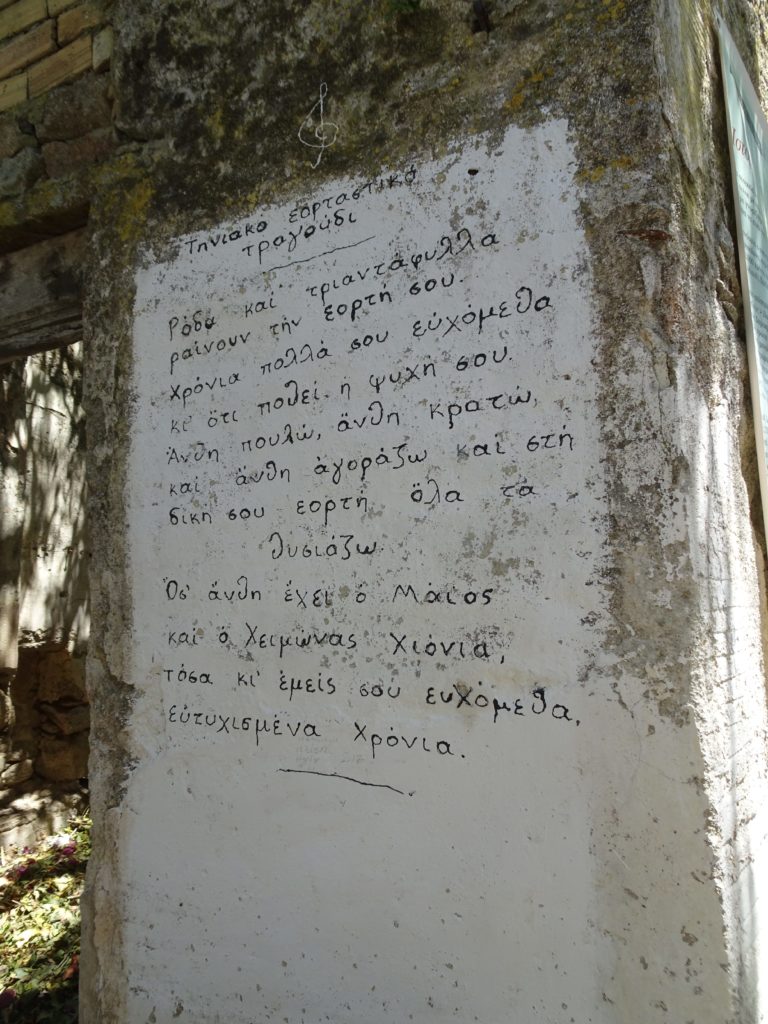 Τηνιακό εορταστικό
τραγούδι
Ρόδα καί τριαντάφυλλα
ραίνουν τήν ἑορτή σου.
Χρόνια πολλά σου εὐχόμεθα
κι' ὅτι ποθεί ἡ ψυχή σου.
Ἄνθη πουλώ, ἄνθη κρατώ,
καί ἄνθη ἀγοράζω καί στή
δική σου εορτή ὅλα τά
θυσιάζω
Ὅσ' ἄνθη ἔχει ὁ Μάιος
καί ὁ Χειμώνας Χιόνια,
τόσα κι' ἐμείς σου ευχόμεθα,
εὐτυχισμένα Χρόνια.